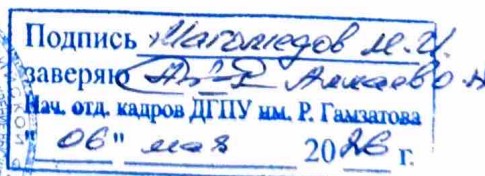 Подпись Магомедов М.И.
заверяю
Нач. отд. кадров ДГПУ им. Р. Гамзатова
"06" мая 2026 г.